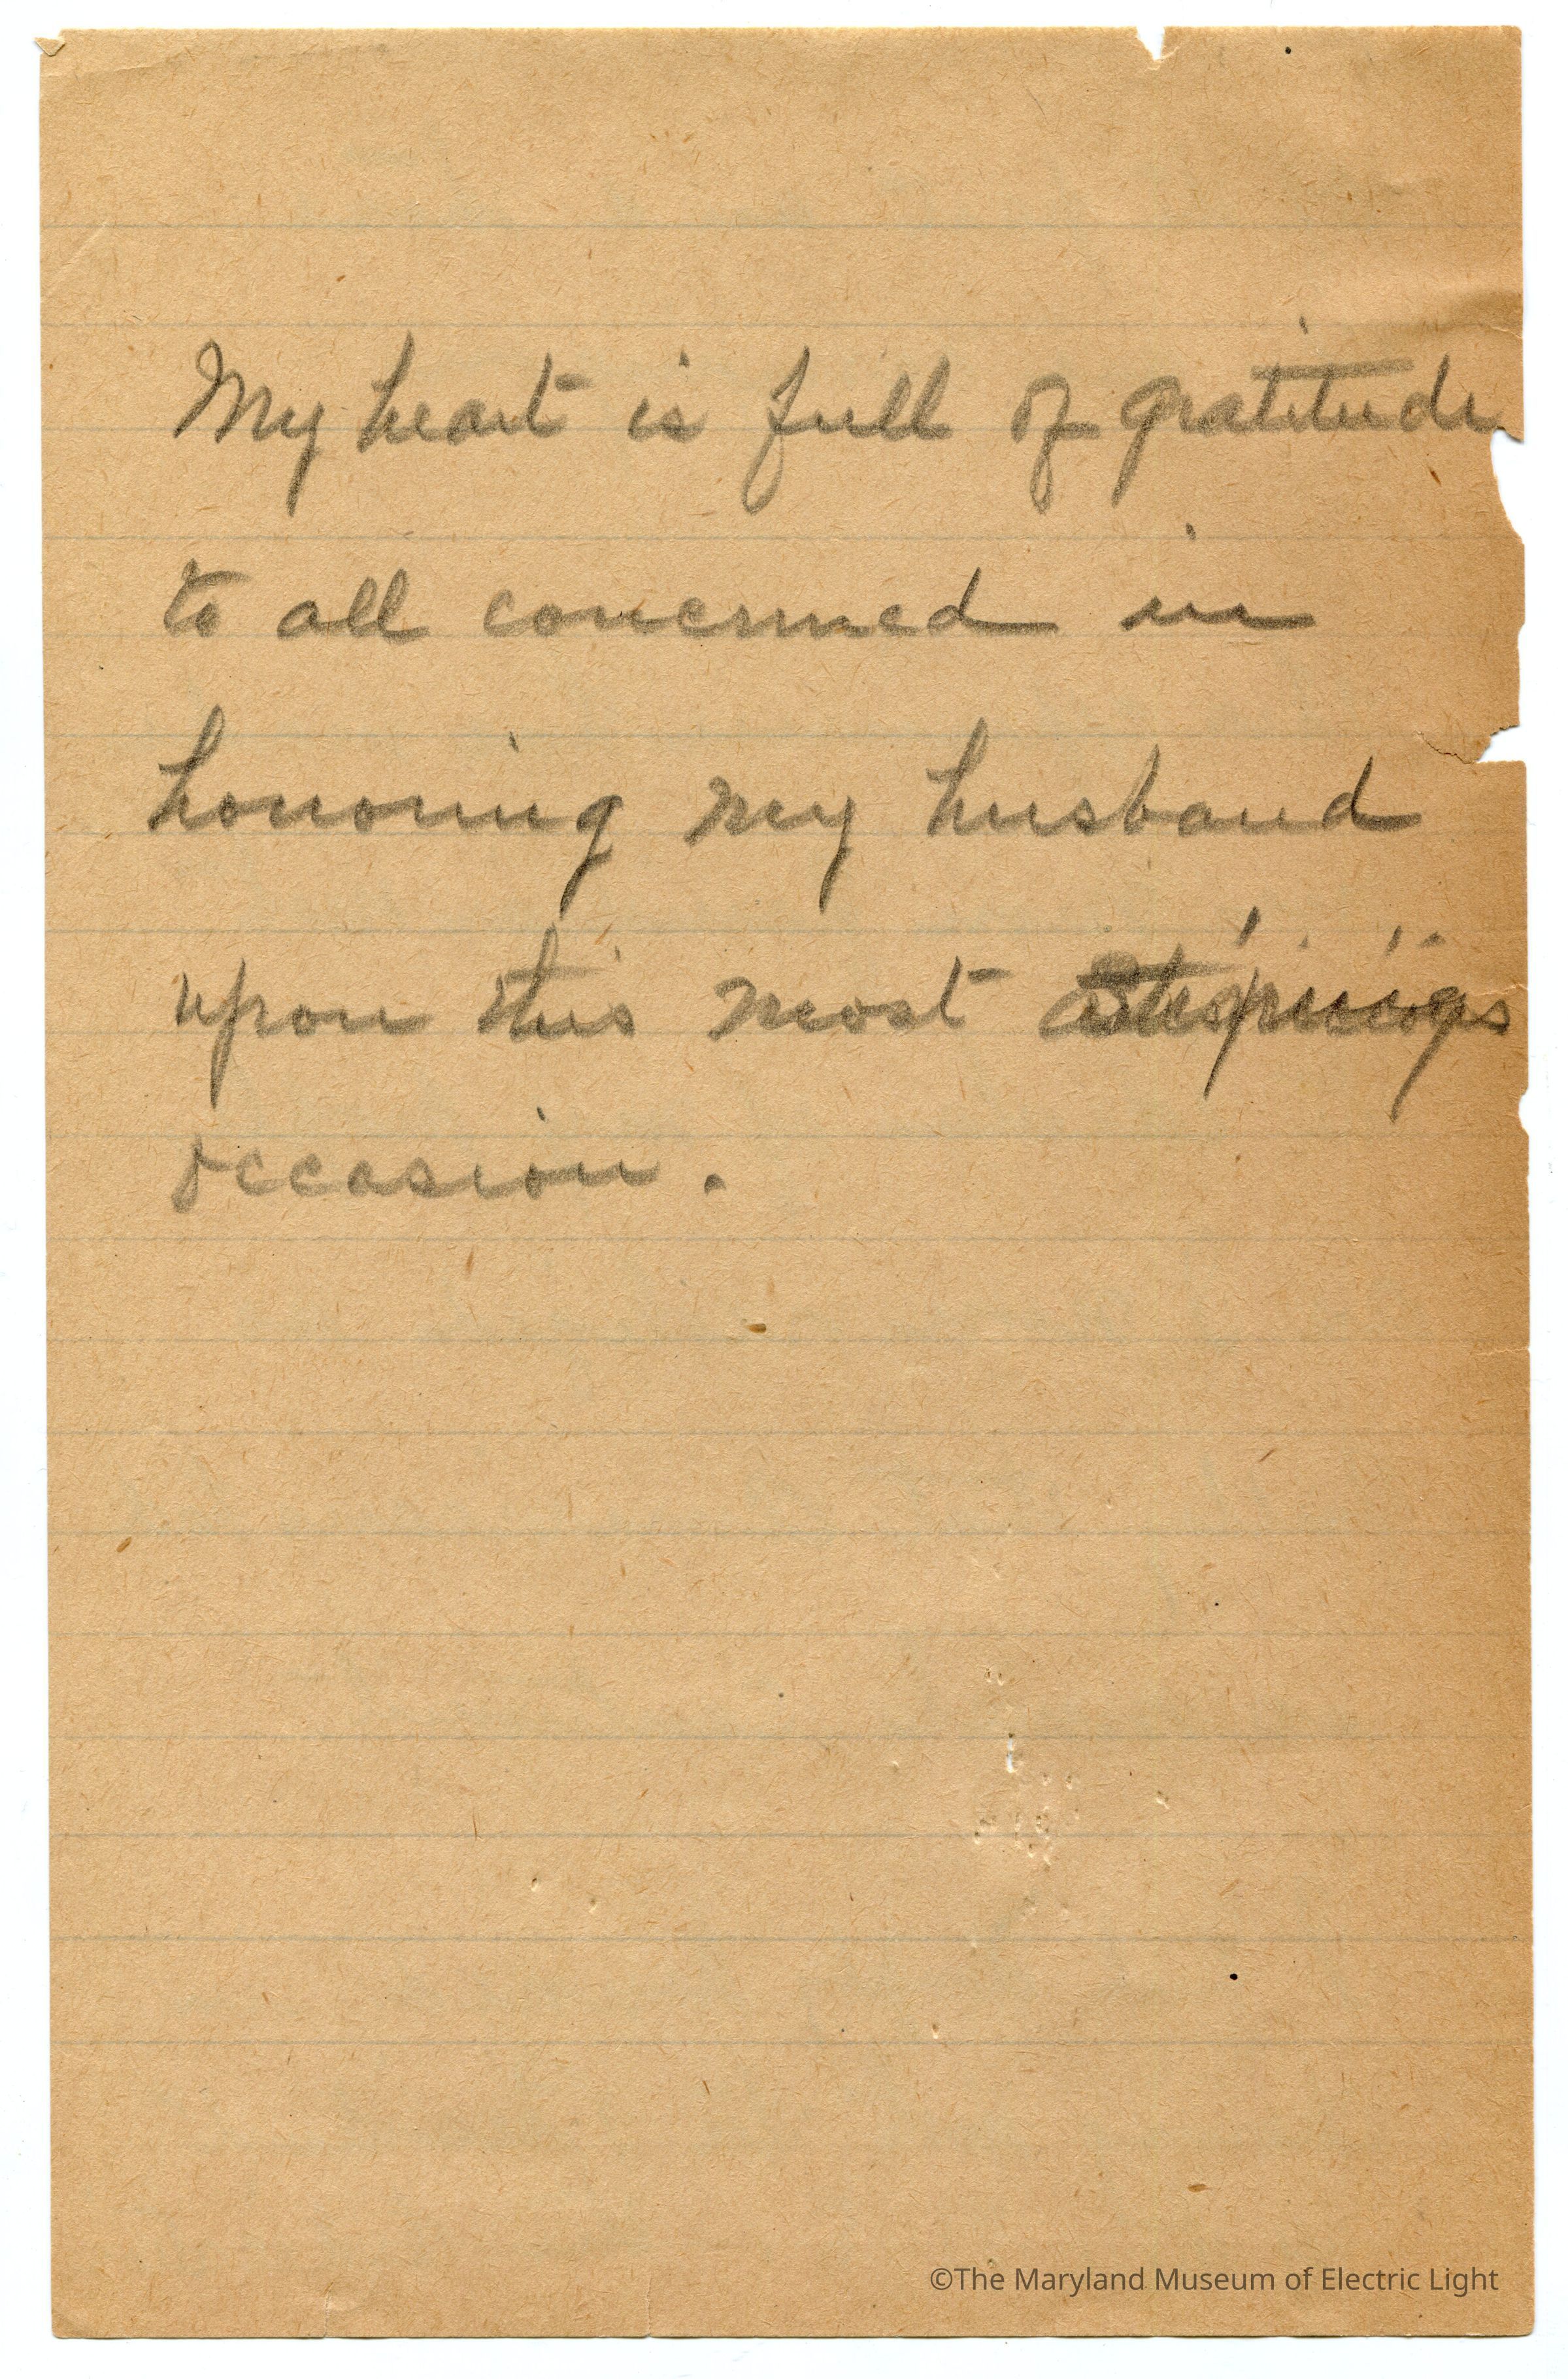 My heart is full of gratitude
to all concerned in
honoring my husband
upon this most
occasion.
©The Maryland Museum of Electric Light